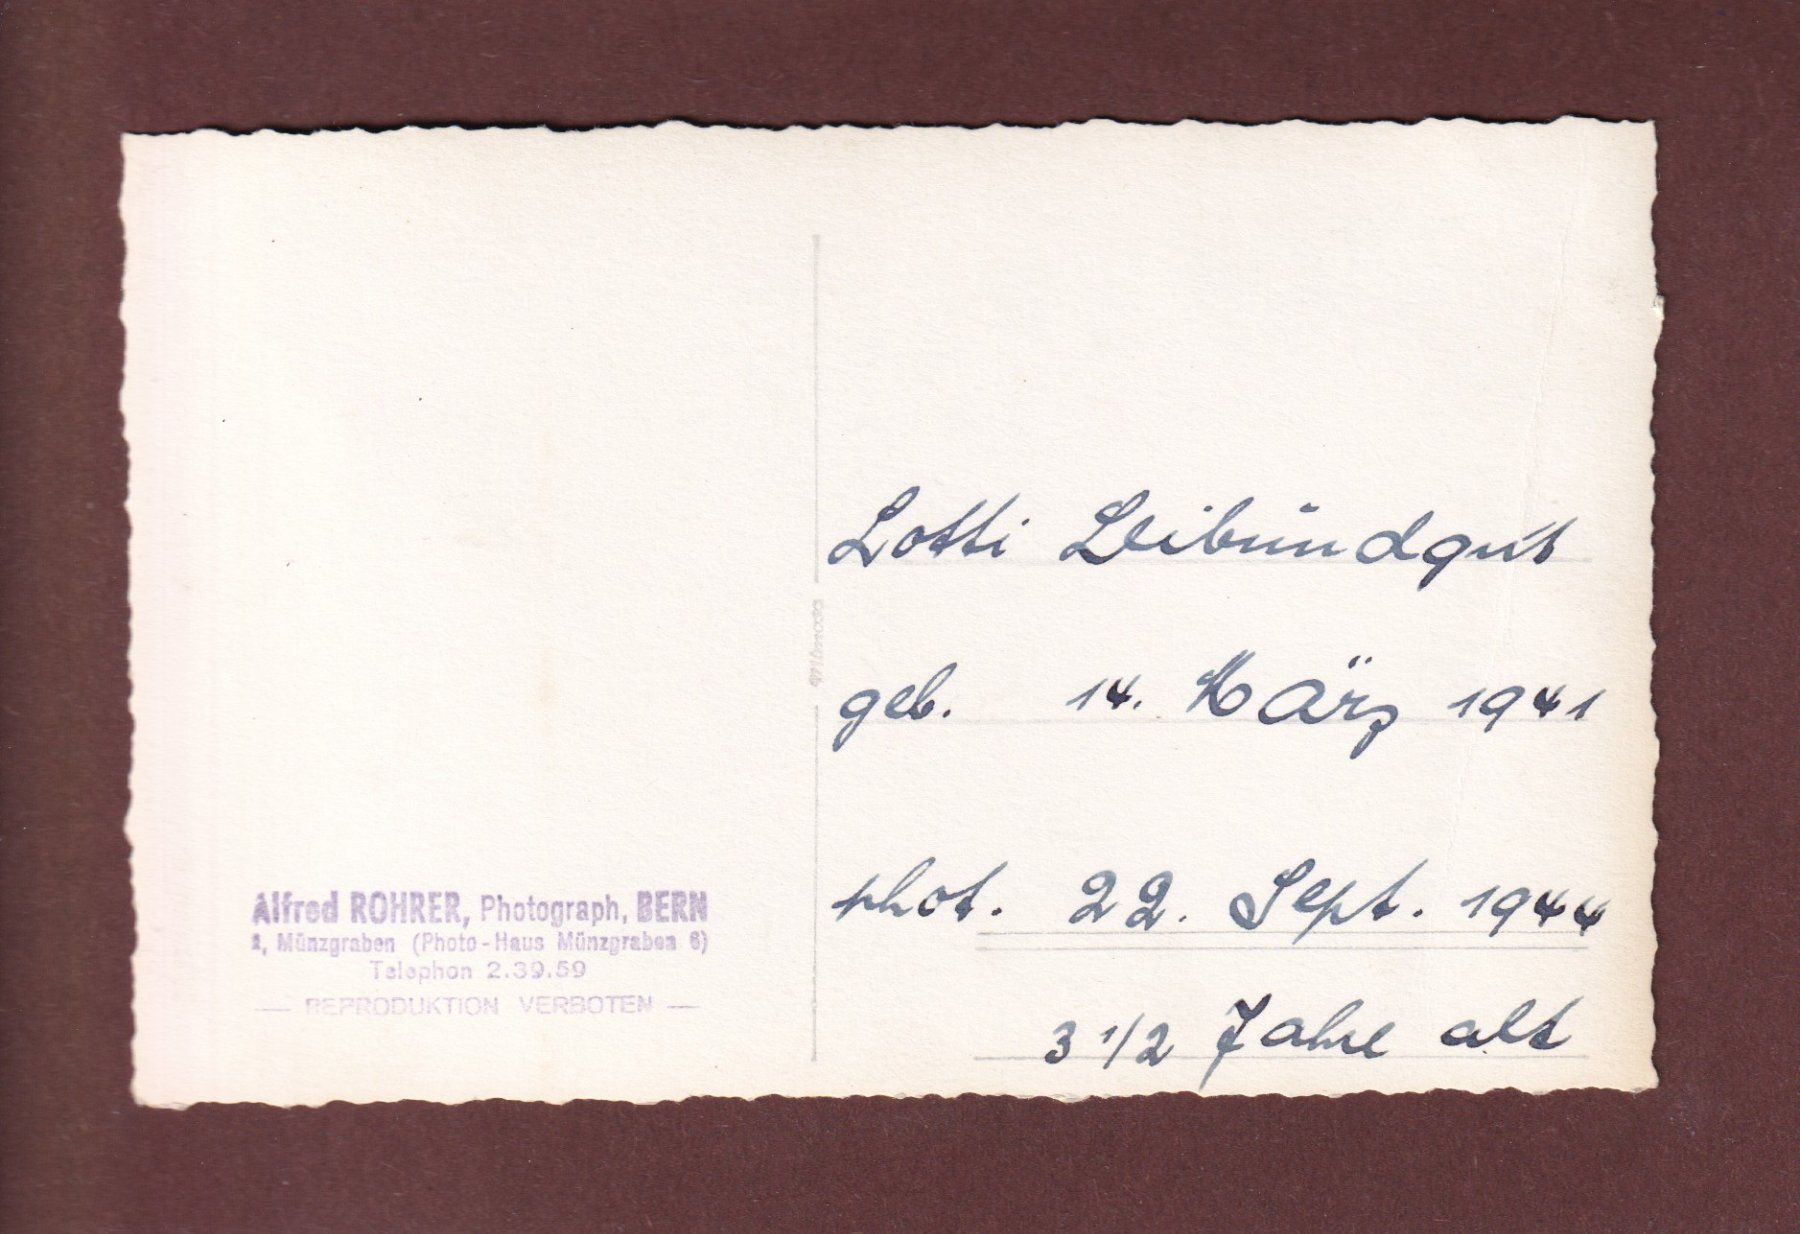 Lotti Leibundgut
geb. 14. März 1941
phot. 22. Sept. 1944
3 1/2 Jahre alt
Alfred ROHRER, Photograph, BERN
Münzgraben (Photo-Haus Münzgraben 6)
Telephon 2.39.59
— REPRODUKTION VERBOTEN —